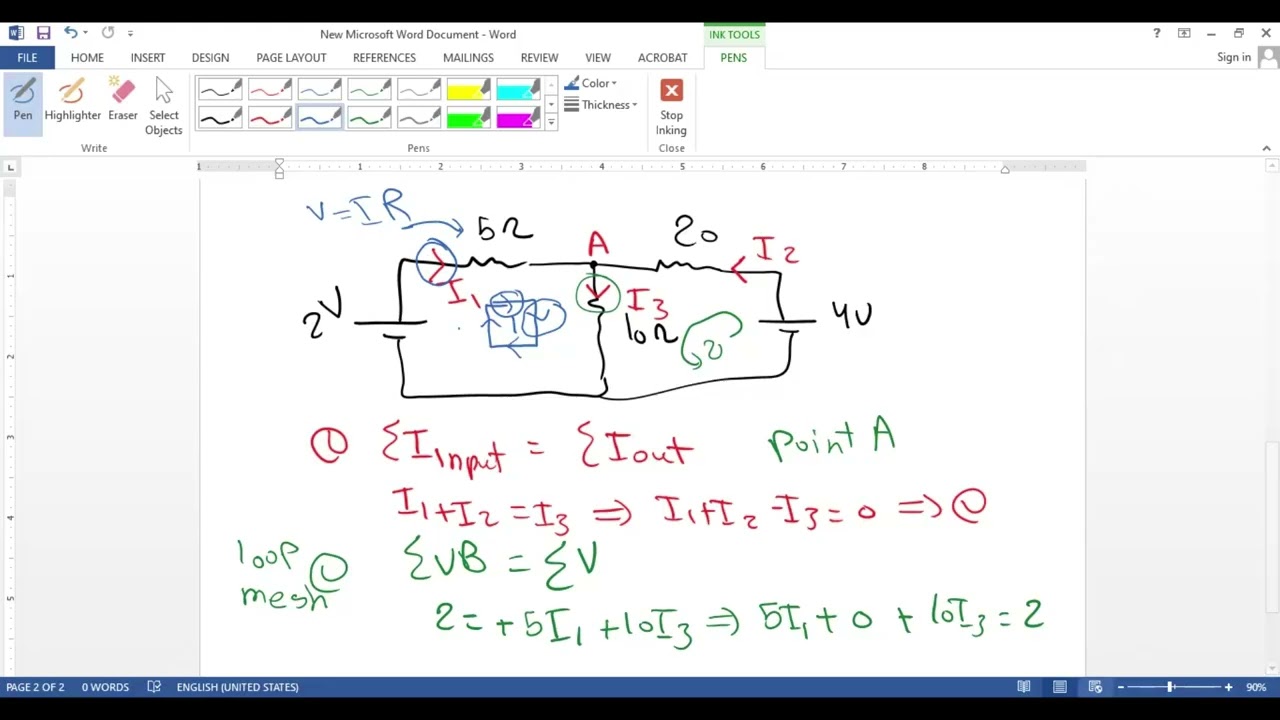 New Microsoft Word Document - Word
INK TOOLS
FILE HOME INSERT DESIGN PAGE LAYOUT REFERENCES MAILINGS REVIEW VIEW ACROBAT PENS Sign in
Pen Highlighter Eraser Select Objects
Color
Thickness
Stop Inking
Write Pens Close
1 1 2 3 4 5 6 7 8
V=IR
5Ω A 20 I2
I1 I3
2V 10Ω 4V
1 2
① ΣI input = ΣI out point A
I1+I2=I3 ⇒ I1+I2-I3=0 ⇒ ①
loop ① ΣVB = ΣV
mesh
2=+5I1+10I3 ⇒ 5I1+0+10I3=2
1 2 3 4 5
PAGE 2 OF 2 0 WORDS ENGLISH (UNITED STATES) 90%